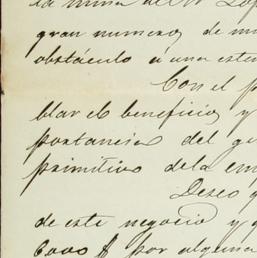 la mina del Sr Lop
gran numero de mi
obstáculo á una esten
Con el p
blar el beneficio y
portancia del ge
primitivo dela em
Deseo q
de este negocio y q
6000 $ por alguna